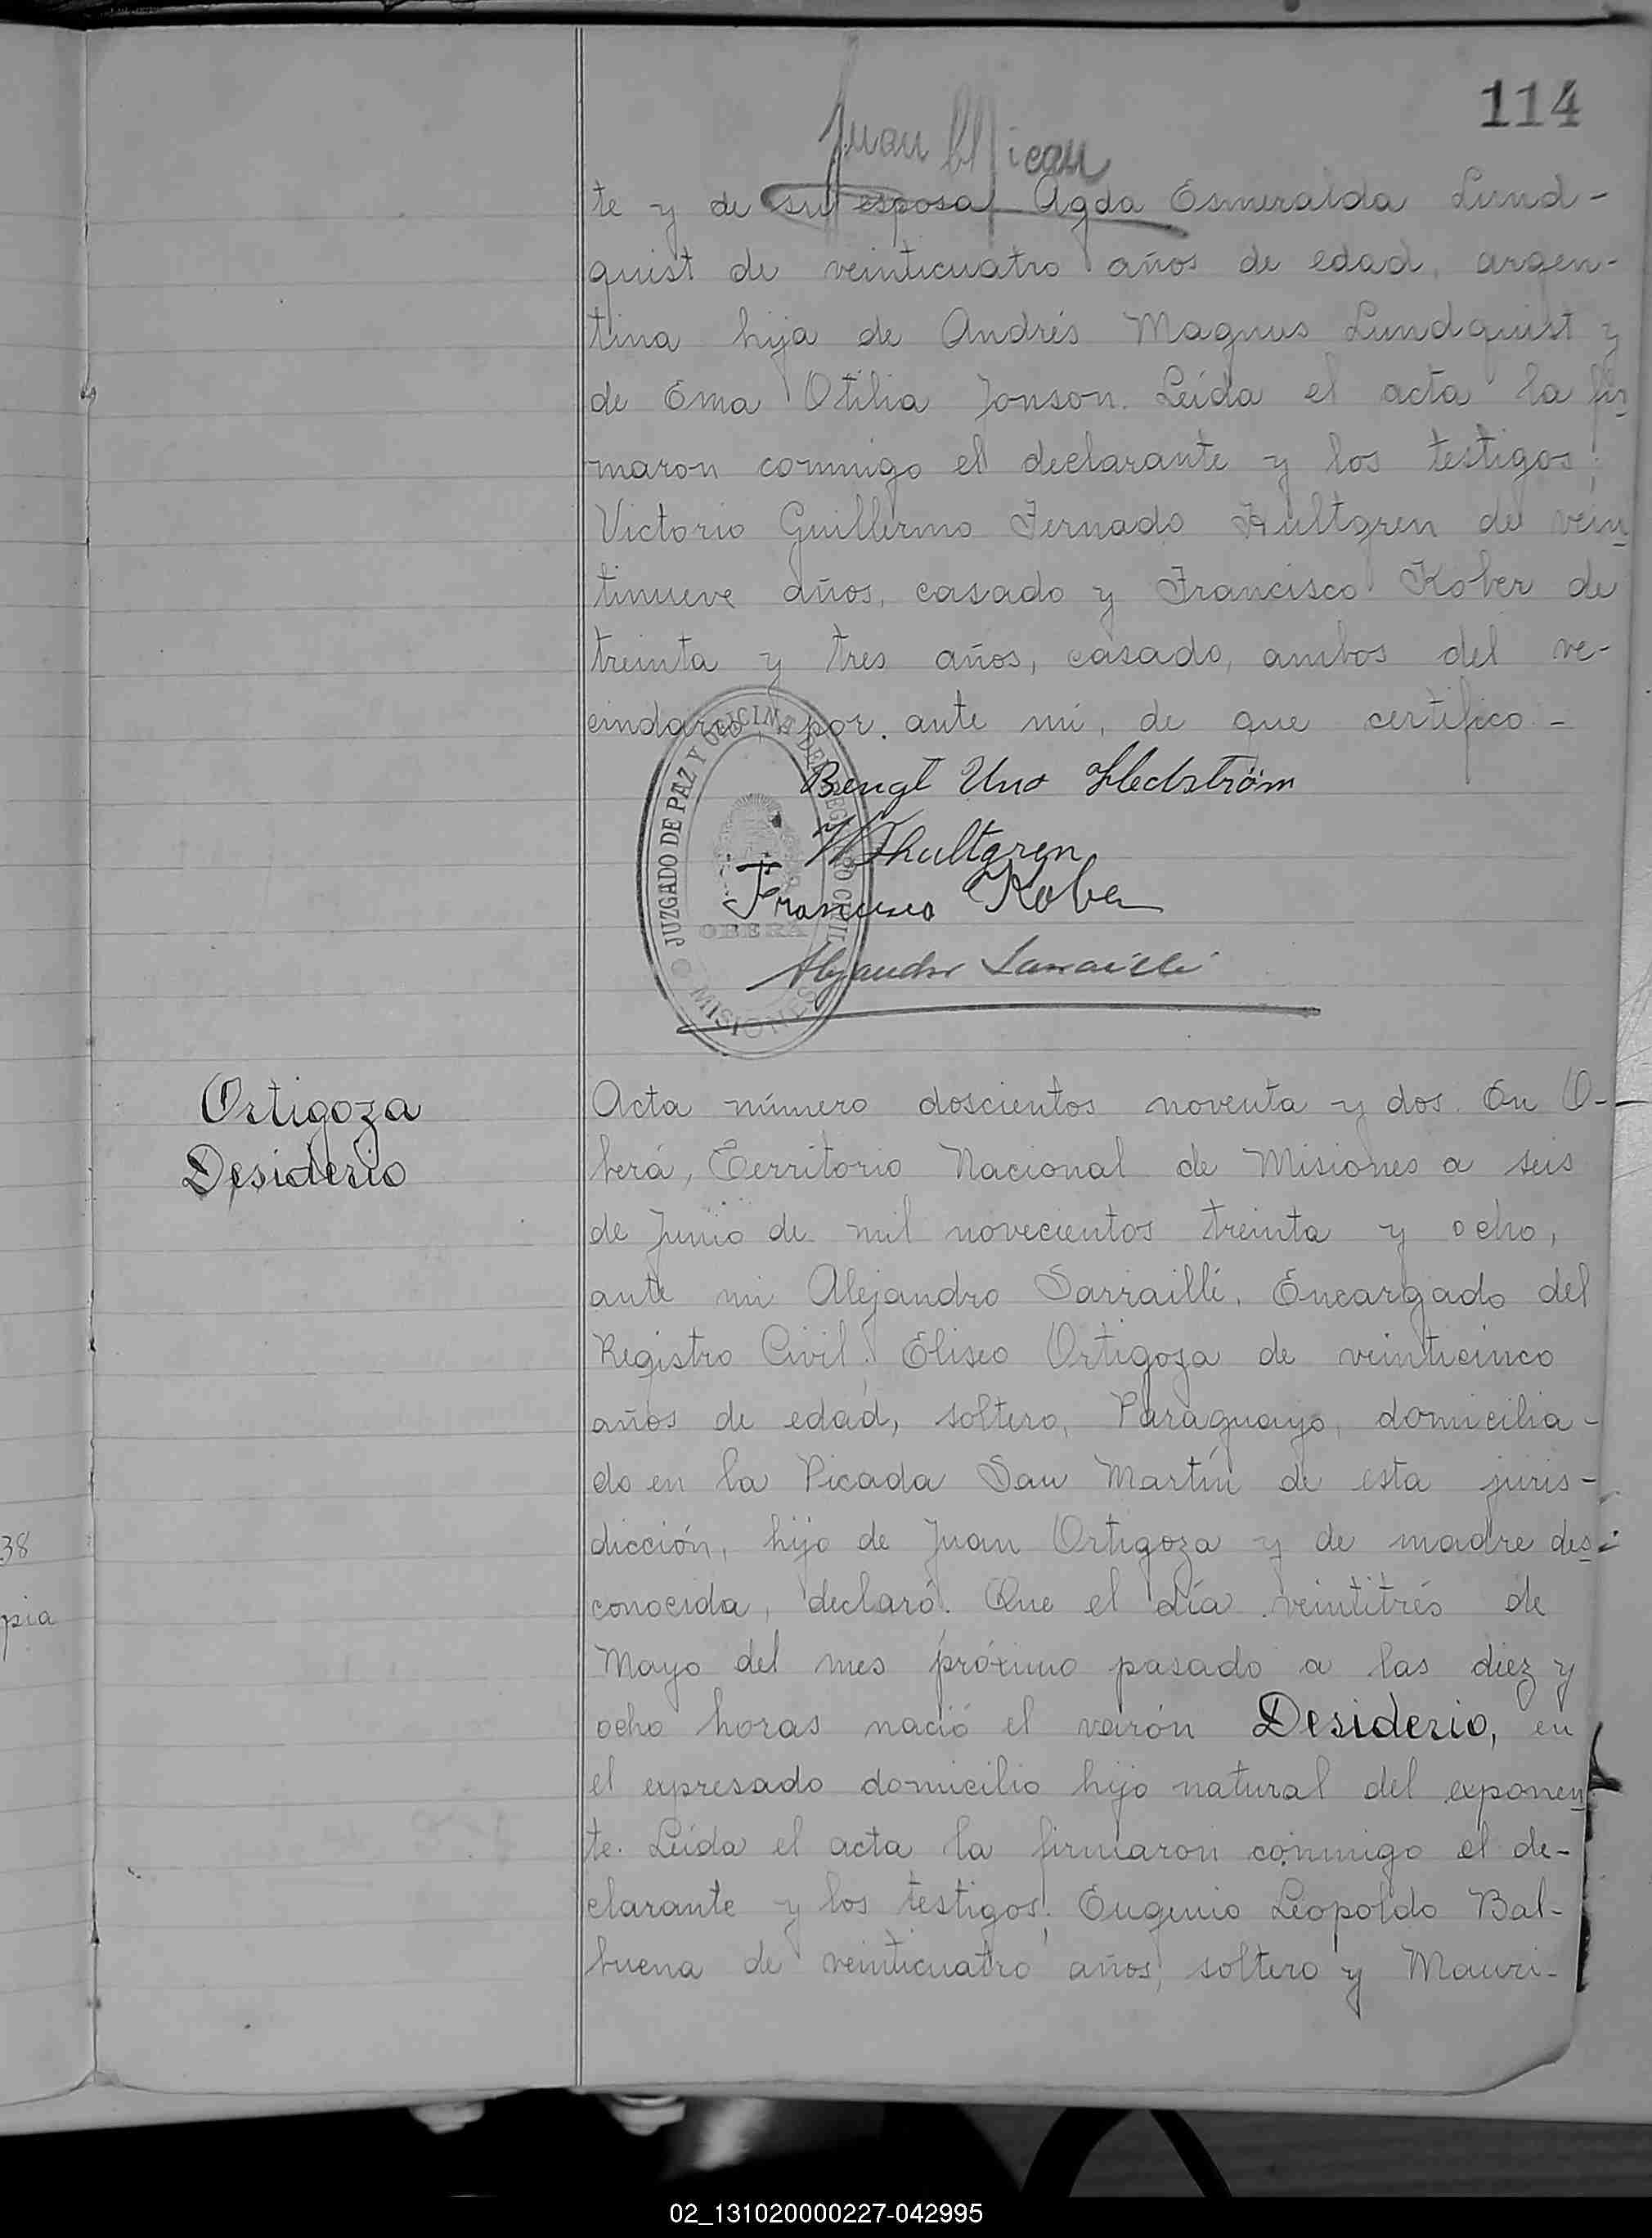 114
Juan
te y de su esposa Agda Esmeralda Lund-
quist de veinticuatro años de edad, argen-
tina hija de Andrés Magnus Lundquist y
de Ema Otilia Jonson. Leída el acta la fir
maron conmigo el declarante y los testigos;
Victorio Guillermo Fernado Hultgren de vein
tinueve años, casado y Francisco Kober de
treinta y tres años, casado, ambos del ve-
cindario por ante mí, de que certifico -
JUZGADO DE PAZ Y OFICINA DEL REGISTRO CIVIL
OBERA
MISIONES
Bengt Uno Hedström
Hultgren
Francisco Kober
Alejandro Sarraillé
Ortigoza
Desiderio
Acta número doscientos noventa y dos. En O-
berá, Territorio Nacional de Misiones a seis
de Junio de mil novecientos treinta y ocho,
ante mi Alejandro Sarraillé, Encargado del
Registro Civil. Eliseo Ortigoza de veinticinco
años de edad, soltero, Paraguayo, domicilia-
do en la Picada San Martín de esta juris-
dicción, hijo de Juan Ortigoza y de madre des
conocida, declaró. Que el día veintitrés de
Mayo del mes próximo pasado a las diez y
ocho horas nació el varón Desiderio, en
el expresado domicilio hijo natural del exponen
te. Leída el acta la firmaron conmigo el de-
clarante y los testigos; Eugenio Leopoldo Bal-
buena de veinticuatro años, soltero y Mauri-
38
pia
02_131020000227-042995